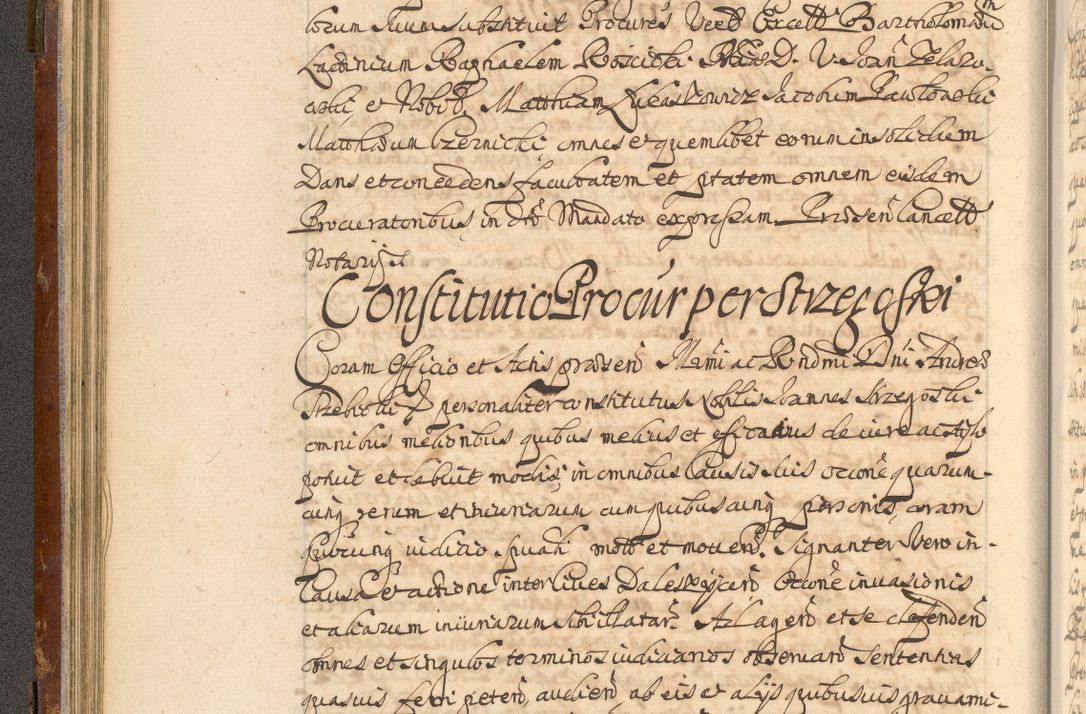 lorum suum substituit Procures Vend Excell Bartholomæum
Lactinium Raphaelem Rościcki Phiæ D. V. Joan Zelazo
wski et Nobb. Matthiam Lukaszkiewicz Jacobum Pawlowski
Matthæum Czernicki, omnes et quemlibet eorum in solidum
Dans et concedens facultatem et ptatem omnem eisdem
Procuratoribus, in dto Mandato expressam Præsen Cancell
Notarij et
Constitutio Procur per Strzegoski
Coram Officio et Actis præsen Illmi ac Rndmi Dni Andreæ
Trzebicki personaliter constitutus Nobilis Joannes Strzegoski
omnibus melioribus quibus melius et efficatius de iure ac stylo
potuit et debuit modis, in omnibus causis suis occõne quarum-
cunq rerum et iniuriarum cum quibuscunq personis, coram
quocunq iudicio spuali mott et moven. Signanter vero in
causa et actione inter Cives Daleszycen Occõne invasionis
et aliarum iniuriarum sibi illatar. Ad agend et se defenden
omnes et singulos terminos iudiciarios observand Sententias
quasvis ferri peten, audien ab eis et alijs quibusvis gravami-